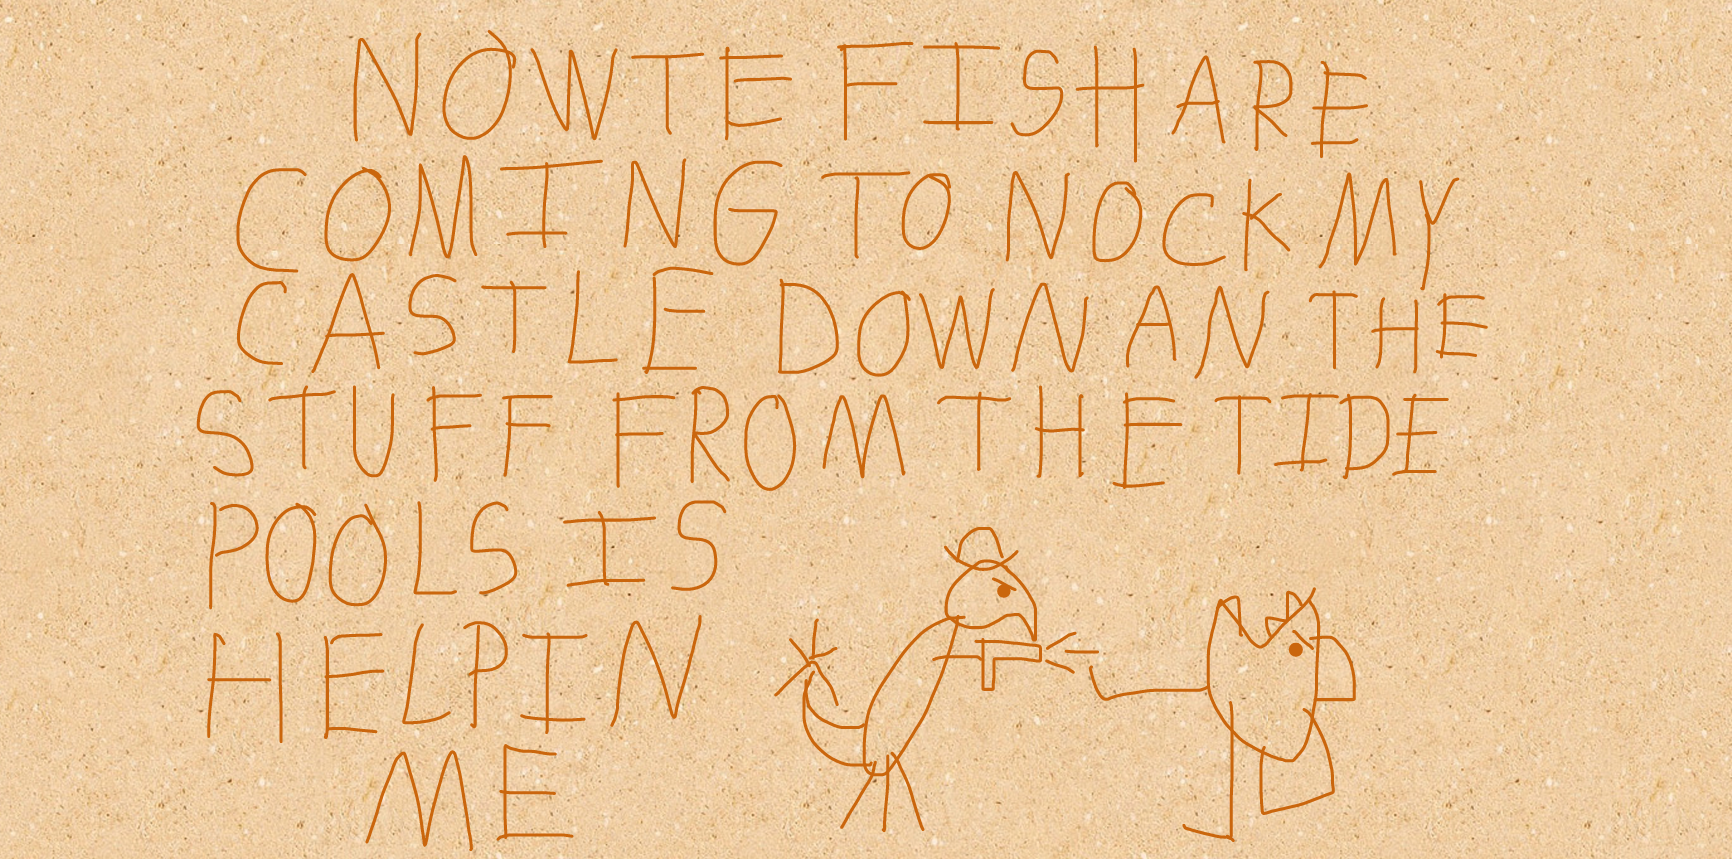 NOW TE FISH ARE
COMING TO NOCK MY
CASTLE DOWN AN THE
STUFF FROM THE TIDE
POOLS IS
HELPIN
ME